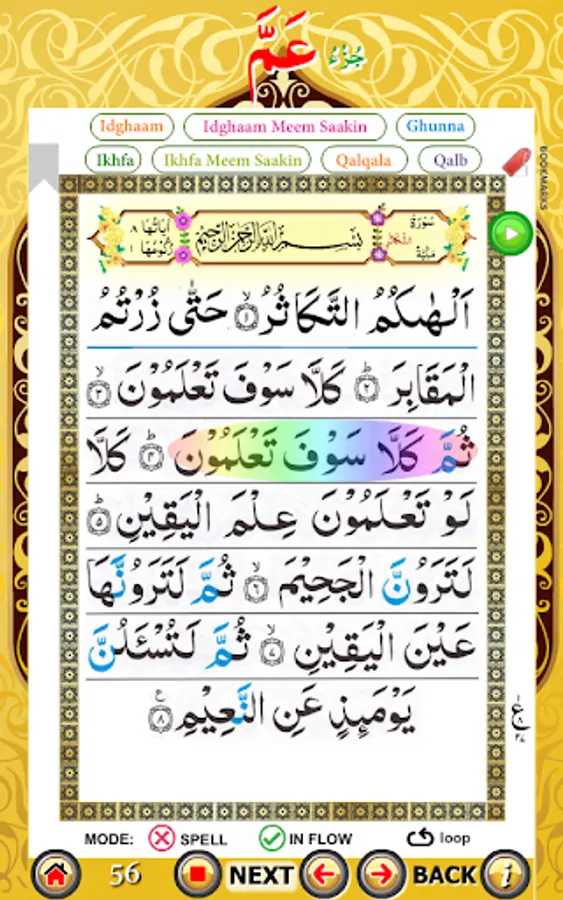 جُزْءُ عَمَّ
Idghaam Idghaam Meem Saakin Ghunna
Ikhfa Ikhfa Meem Saakin Qalqala Qalb
BOOKMARKS
سُوْرَةُ التَّكَاثُرِ مَكِّيَّةٌ
بِسْمِ اللهِ الرَّحْمٰنِ الرَّحِيْمِ
اٰيَاتُهَا ٨
رُكُوْعُهَا ١
اَلْهٰىكُمُ التَّكَاثُرُ ۙ‏﴿۱﴾ حَتّٰى زُرْتُمُ
الْمَقَابِرَ ؕ‏﴿۲﴾ كَلَّا سَوْفَ تَعْلَمُوْنَ ۙ‏﴿۳﴾
ثُمَّ كَلَّا سَوْفَ تَعْلَمُوْنَ ؕ‏﴿۴﴾ كَلَّا
لَوْ تَعْلَمُوْنَ عِلْمَ الْيَقِيْنِ ؕ‏﴿۵﴾
لَتَرَوُنَّ الْجَحِيْمَ ۙ‏﴿۶﴾ ثُمَّ لَتَرَوُنَّهَا
عَيْنَ الْيَقِيْنِ ۙ‏﴿۷﴾ ثُمَّ لَتُسْـَٔلُنَّ
يَوْمَىِٕذٍ عَنِ النَّعِيْمِ ﴿۸﴾ ع
MODE: SPELL IN FLOW loop
56 NEXT BACK i